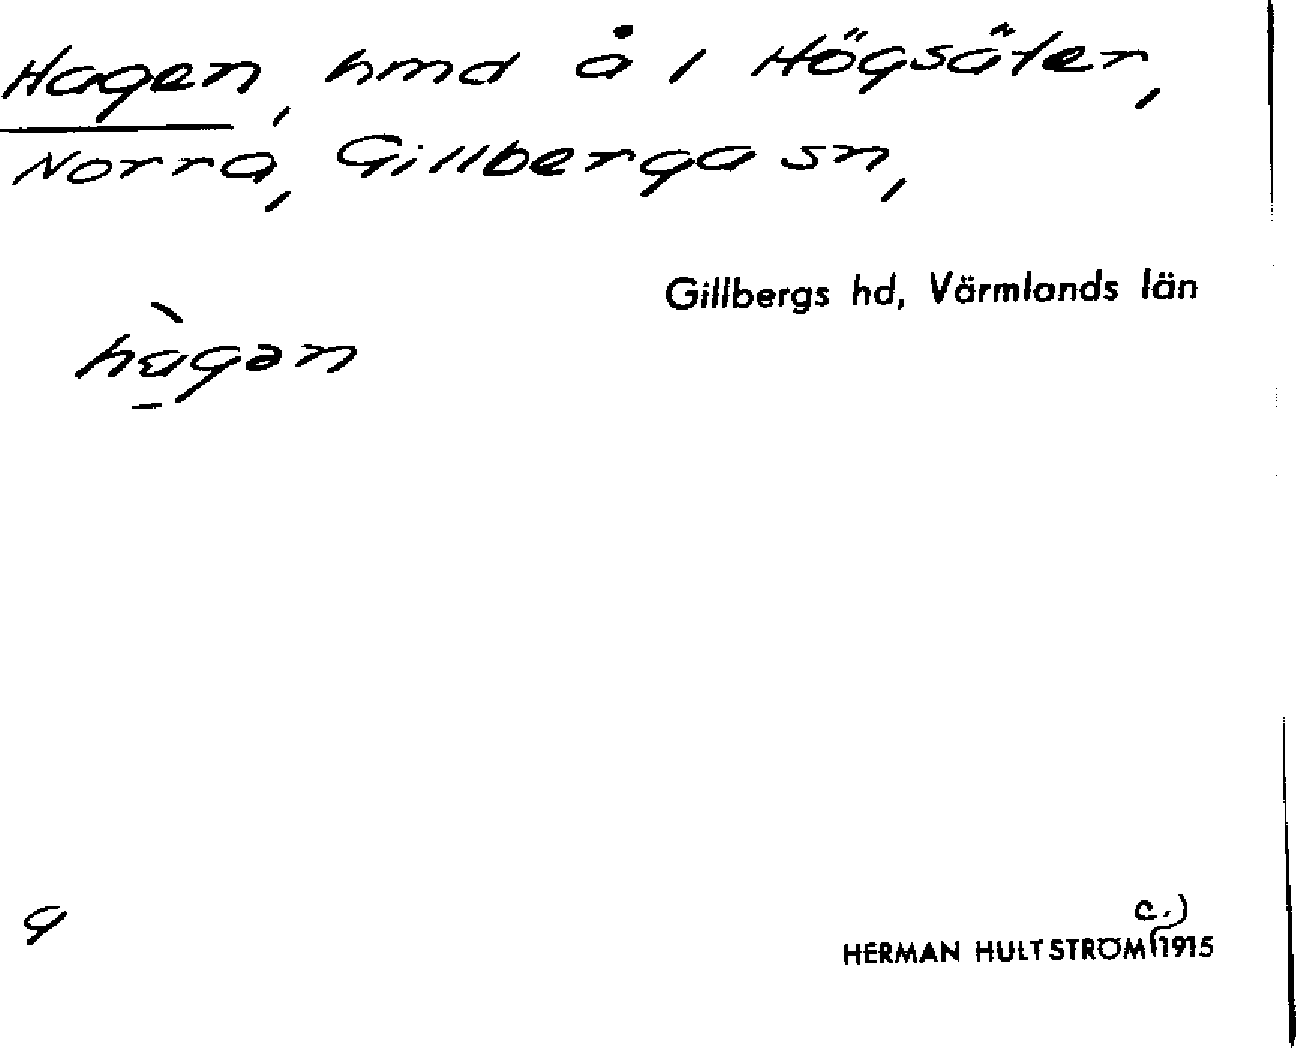 Hagen, hmd å i Högsäter,
Norra, Gillberga sn,
Gillbergs hd, Värmlands län
hàgən
9
c.)
HERMAN HULTSTRÖM 1915